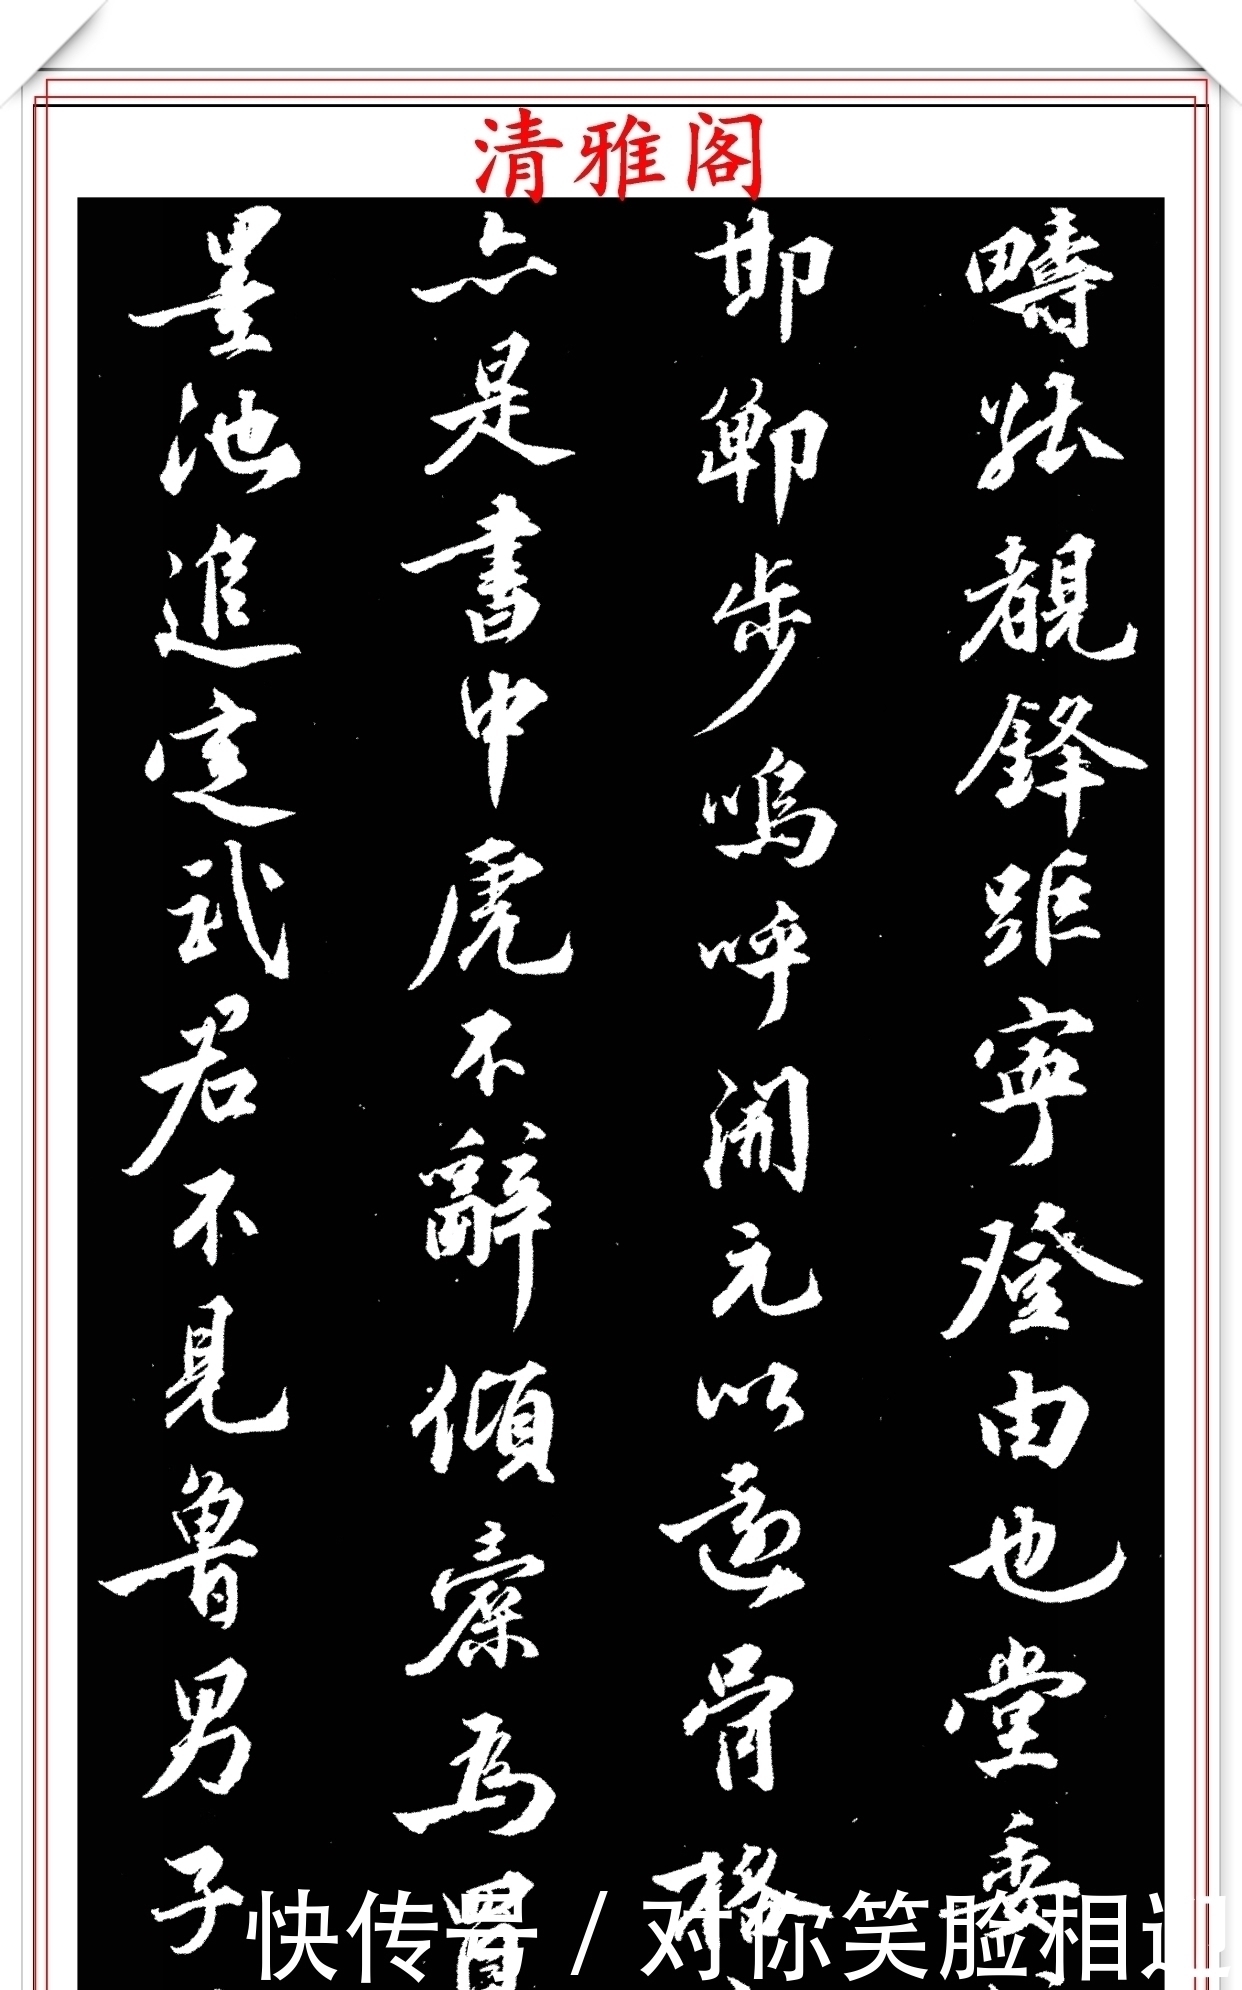 清雅阁
畴能觏锋距寧登由也堂
邯鄲步嗚呼開元以遠骨格
亦是書中虎不辭傾囊為買
墨池追定武君不見魯男子
快传号/对你笑脸相迎